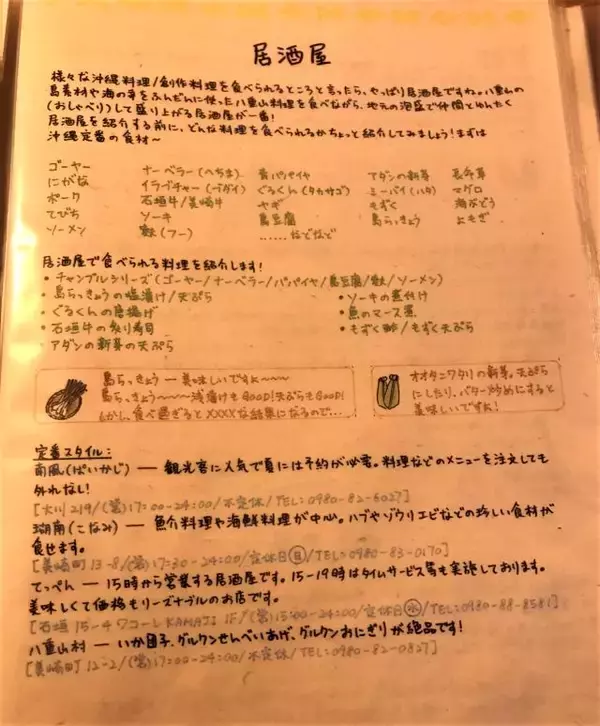 居酒屋
様々な沖縄料理/創作料理を食べられるところと言ったら、やっぱり居酒屋ですね。八重山の
島素材や海の幸をふんだんに使った八重山料理を食べながら、地元の泡盛で仲間とゆんたく
(おしゃべり)して盛り上がる居酒屋が一番!
居酒屋を紹介する前に、どんな料理を食べられるかちょっと紹介してみましょう!まずは
沖縄定番の食材~
ゴーヤー ナーベラー(へちま) 青パパイヤ アダンの新芽 長命草
にがな イラブチャー(ブダイ) ぐるくん(タカサゴ) ミーバイ(ハタ) マグロ
ポーク 石垣牛/美崎牛 ヤギ もずく 海ぶどう
てびち ソーキ 島豆腐 島らっきょう よもぎ
ソーメン 麩(フー) ……などなど
居酒屋で食べられる料理を紹介します!
・チャンプルシリーズ(ゴーヤー/ナーベラー/パパイヤ/島豆腐/麩/ソーメン)
・島らっきょうの塩漬け/天ぷら ・ソーキの煮付け
・ぐるくんの唐揚げ ・魚のマース煮
・石垣牛の炙り寿司 ・もずく酢/もずく天ぷら
・アダンの新芽の天ぷら
島らっきょう ― 美味しいですよ~~~~
島らっきょう~~~~浅漬けもGOOD!天ぷらもGOOD!
しかし、食べ過ぎると××××な結果になるので…
オオタニワタリの新芽。天ぷら
にしたり、バター炒めにすると
美味しいですよ!
定番スタイル:
南風(ぱいかじ) ― 観光客に人気で夏には予約が必要。料理などのメニューを注文しても
外れなし!
[大川219/(営)17:00-24:00/不定休/TEL:0980-82-6027]
瑚南(こなみ) ― 魚介料理や海鮮料理が中心。ハブやゾウリエビなどの珍しい食材が
食せます。
[美崎町13-8/(営)17:30-24:00/定休日㊐/TEL:0980-83-0170]
てっぺん ― 15時から営業する居酒屋です。15-19時はタイムサービス等も実施しております。
美味しくて価格もリーズナブルのお店です。
[石垣15-4ワコーレKAMAJI 1F/(営)15:00-24:00/定休日㊌/TEL:0980-88-8581]
八重山村 ― いか団子、グルクンせんべいあげ、グルクンおにぎりが絶品です!
[美崎町12-2/(営)17:00-24:00/不定休/TEL:0980-82-0827]